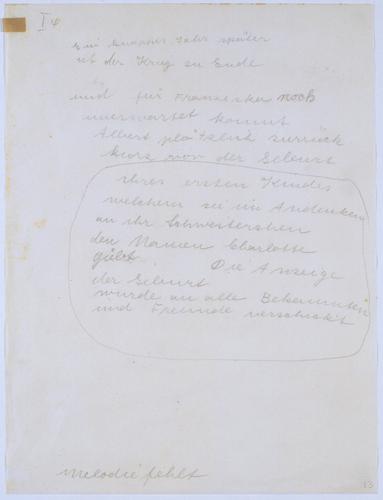 I 4
Ein knappes Jahr später
ist der Krieg zu Ende
und für Franziska noch
unerwartet kommt
Albert plötzlich zurück
kurz vor der Geburt
ihres ersten Kindes
welchem sie im Andenken
an ihr Schwesterchen
den Namen Charlotte
gibt. Die Anzeige
der Geburt
wurde an alle Bekannten
und Freunde verschickt
Melodie fehlt
13